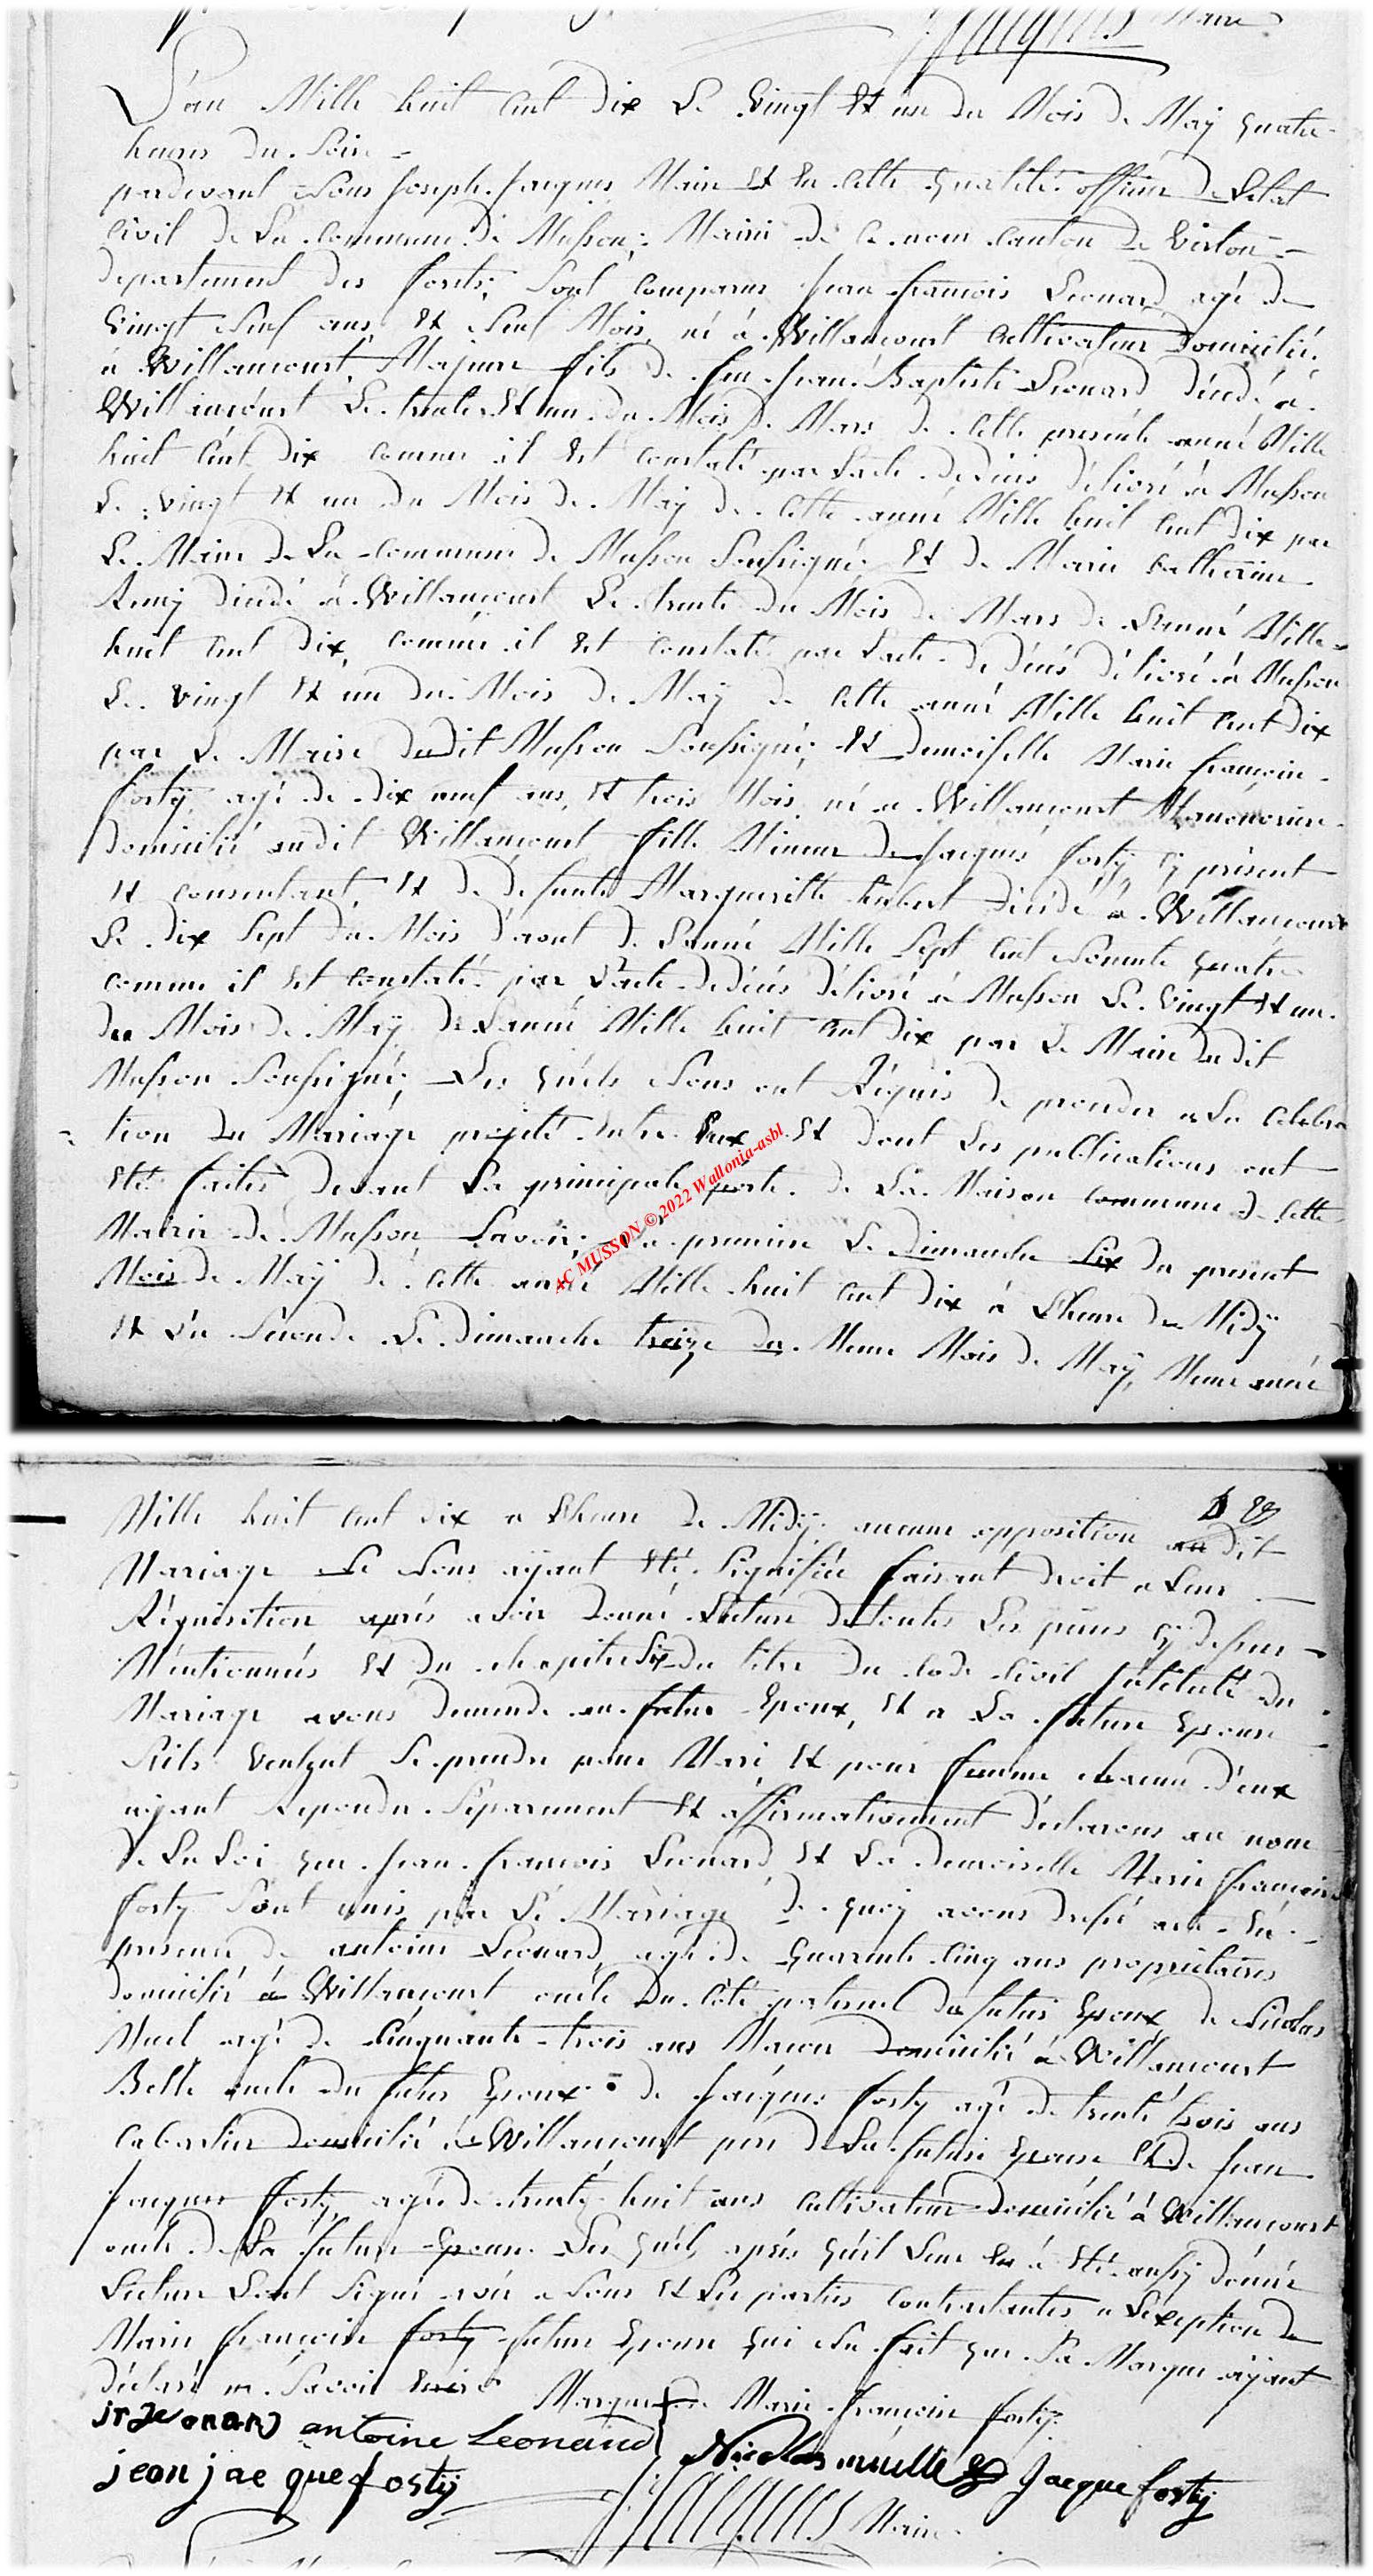 Maire
L'an Mille huit Cent dix Le Vingt Et un du Mois de Maÿ quatre
heures du Soir
pardevant Nous Joseph Jacques Maire Et En Cette qualité officier de L'etat
Civil de La Commune de Musson, Mairie de Ce nom Canton de Virton
departement des forets, Sont Comparus Jean francois Leonard agé de
Vingt Neuf ans Et Neuf Mois, né à Willancourt Cultivateur Domicilié
a Willancourt, Majeur fils de feu Jean Baptiste Leonard décédé à
Willancourt Le trente Et un du Mois de Mars de Cette presente année Mille
huit Cent Dix Comme il Est Constaté par L'acte de déces délivré à Musson
Le vingt Et un du Mois de Maÿ de Cette année Mille huit Cent dix par
Le Maire de La Commune de Musson Soussigné, Et de Marie Catherine
Remy décédé à Willancourt Le trente du Mois de Mars de L'année Mille
huit Cent Dix, Comme il Est Constaté par L'acte de déces délivré à Musson
Le vingt Et un du Mois de Maÿ de Cette année Mille huit Cent Dix
par Le Maire dudit Musson Soussigné, Et demoiselle Marie francoise
forty agé de dix neuf ans, Et trois Mois né a Willancourt
domicilié audit Willancourt fille Mineur de Jacques forty, Cy présent
Et Consentant, Et de defunte Margueritte hubert décédé à Willancourt
Le dix Sept du Mois d'aout de L'année Mille Sept Cent Nonente quatre
Comme il Est Constaté par L'acte de déces délivré à Musson Le Vingt Et un
du Mois de Maÿ de L'année Mille huit Cent Dix par Le Maire dudit
Musson Soussigné, Les quels Nous ont Requis de proceder a La Celebra
tion du Mariage projeté Entre Eux Et dont Les publications ont
Eté faites devant La principale porte de La Maison Commune de Cette
Mairie de Musson, Savoir, La premiere Le Dimanche Six du present
Mois de Maÿ de Cette année Mille huit Cent dix à L'heure de Midÿ
Et La Seconde Le Dimanche treize du Meme Mois de Maÿ, Meme année
4C MUSSON © 2022 Wallonia-asbl
Mille huit Cent dix a L'heure de Midÿ, aucune opposition audit
Mariage Ne Nous aÿant Eté Signifiée faisant droit a Leur
Réquisition aprés avoir donné Lecture de toutes Les pieces Cy dessus
Mentionnés Et du chapitre Six du titre du Code Civil Intitulé du
Mariage avons Demandé au futur Epoux, Et a La future Epouse
S'ils Veulent Se prendre pour Mari Et pour femme chacun d'eux
aÿant Repondu Séparement Et affirmativement déclarons au nom
de La Loi que Jean francois Leonard Et La demoiselle Marie francoise
forty Sont unis par Le Mariage de quoy avons dressé acte En
presence de antoine Leonard, agé de quarente Cinq ans proprietaires
domicilié à Willancourt oncle du Coté paternel du futur Epoux de Nicolas
Muel agé de Cinquante trois ans Macon domicilié à Willancourt
Belle oncle du futur Epoux de Jacques forty agé de trente trois ans
Cabartier domicilié à Willancourt pere de La future Epouse Et de Jean
Jacques forty, agé de trente huit ans Cultivateur domicilié à Willancourt
oncle de La future Epouse Les quels, aprés qu'il Leur En à Eté aussy donnée
Lecture L'ont Signé avec Nous Et Les parties Contractantes a L'exception de
Marie francoise forty future Epouse qui N'a fait que Sa Marque aÿant
déclaré ne Savoir Ecrire
Marque de Marie francoise forty
jf Leonard antoine Leonard Nicolas muelle Jacque fortij
jean jacque fortij
Jacques Maire